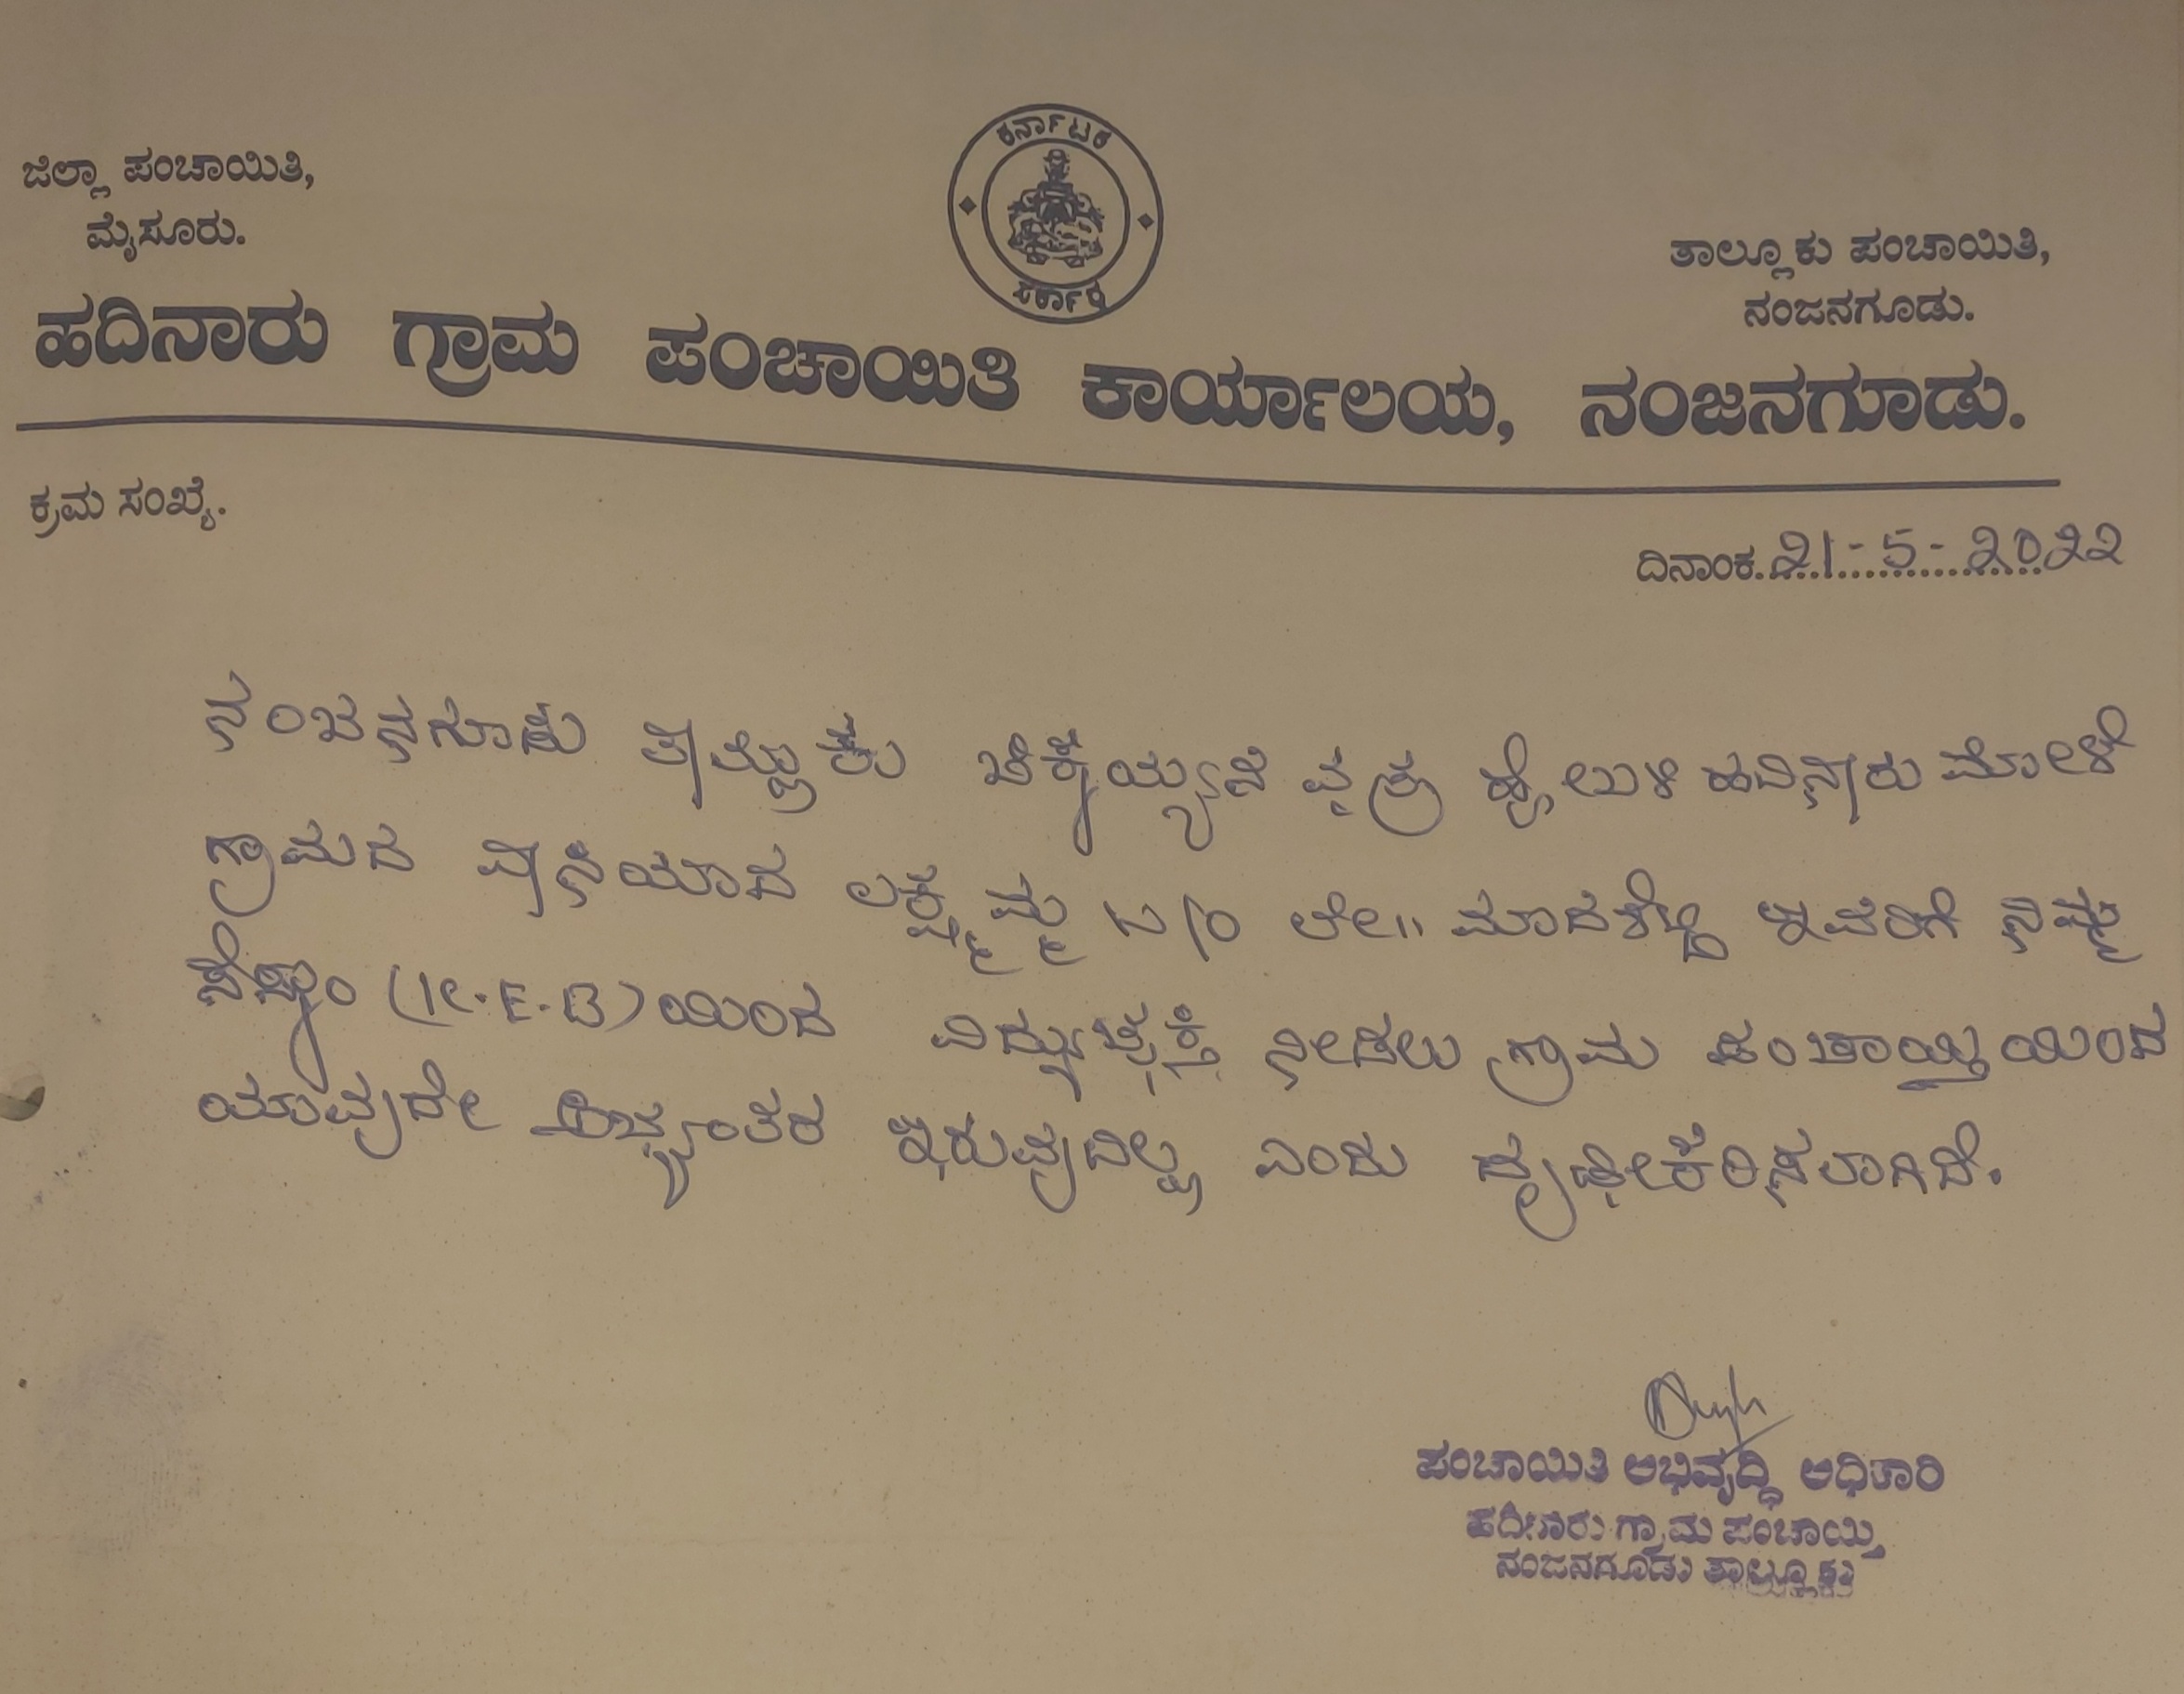 ಕರ್ನಾಟಕ
ಸರ್ಕಾರ
ಜಿಲ್ಲಾ ಪಂಚಾಯಿತಿ,
ಮೈಸೂರು.
ತಾಲ್ಲೂಕು ಪಂಚಾಯಿತಿ,
ನಂಜನಗೂಡು.
ಹದಿನಾರು ಗ್ರಾಮ ಪಂಚಾಯಿತಿ ಕಾರ್ಯಾಲಯ, ನಂಜನಗೂಡು.
ಕ್ರಮ ಸಂಖ್ಯೆ.
ದಿನಾಂಕ. 21-5-2022
ನಂಜನಗೂಡು ತಾಲ್ಲೂಕು ಹದಿನಾರು ಮೋಳೆ
ಗ್ರಾಮದ ವಾಸಿಯಾದ ಲಕ್ಷ್ಮಮ್ಮ ಲೇ॥ ಇವರಿಗೆ ನಿಮ್ಮ
(K.E.B)ಯಿಂದ ನೀಡಲು ಗ್ರಾಮ ಪಂಚಾಯ್ತಿಯಿಂದ
ಯಾವುದೇ ಅಭ್ಯಂತರ ಇರುವುದಿಲ್ಲ ಎಂದು ದೃಢೀಕರಿಸಲಾಗಿದೆ.
ಪಂಚಾಯಿತಿ ಅಭಿವೃದ್ಧಿ ಅಧಿಕಾರಿ
ಹದಿನಾರು ಗ್ರಾಮ ಪಂಚಾಯ್ತಿ
ನಂಜನಗೂಡು ತಾಲ್ಲೂಕು